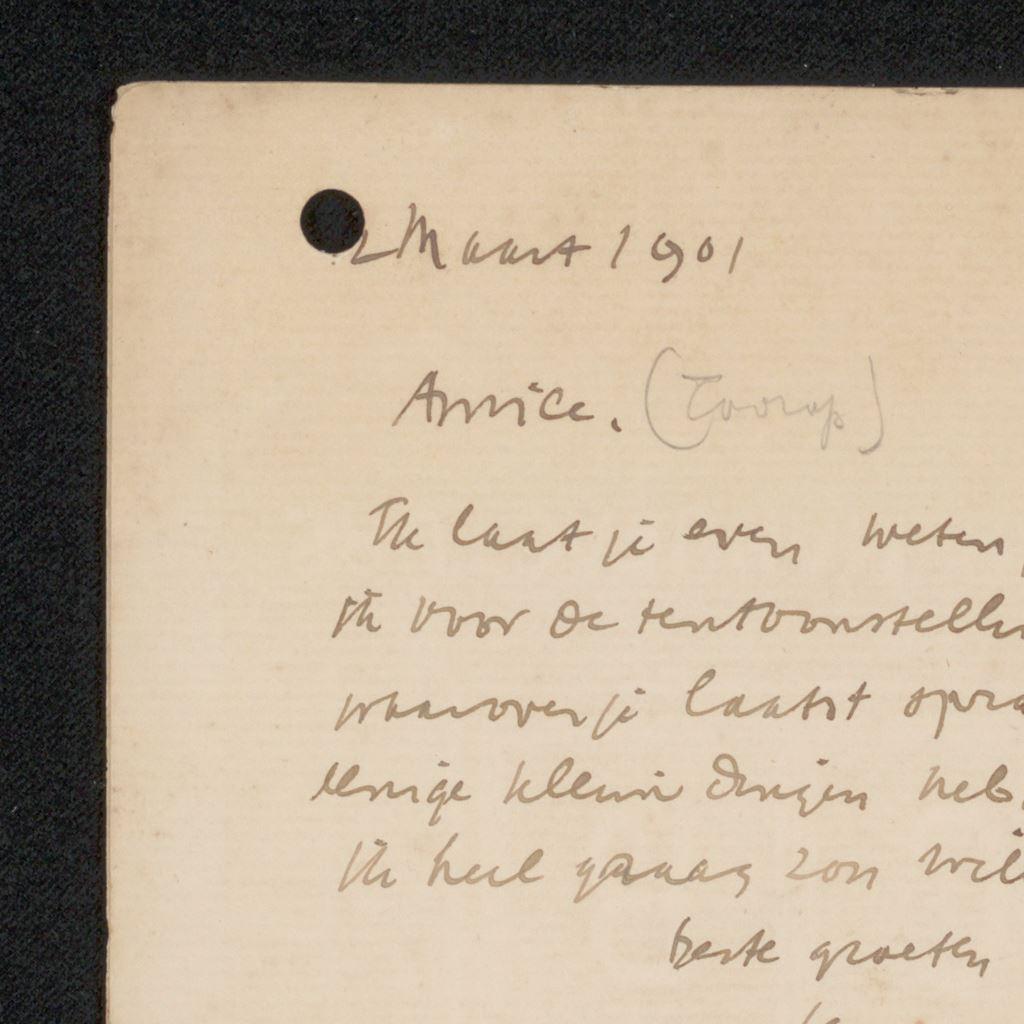 2 Maart 1901
Amice. (Toorop)
Ik laat je even weten,
ik voor de tentoonstelli
waarover je laatst spra
eenige kleine dingen heb,
ik heel graag zou wil
beste groeten